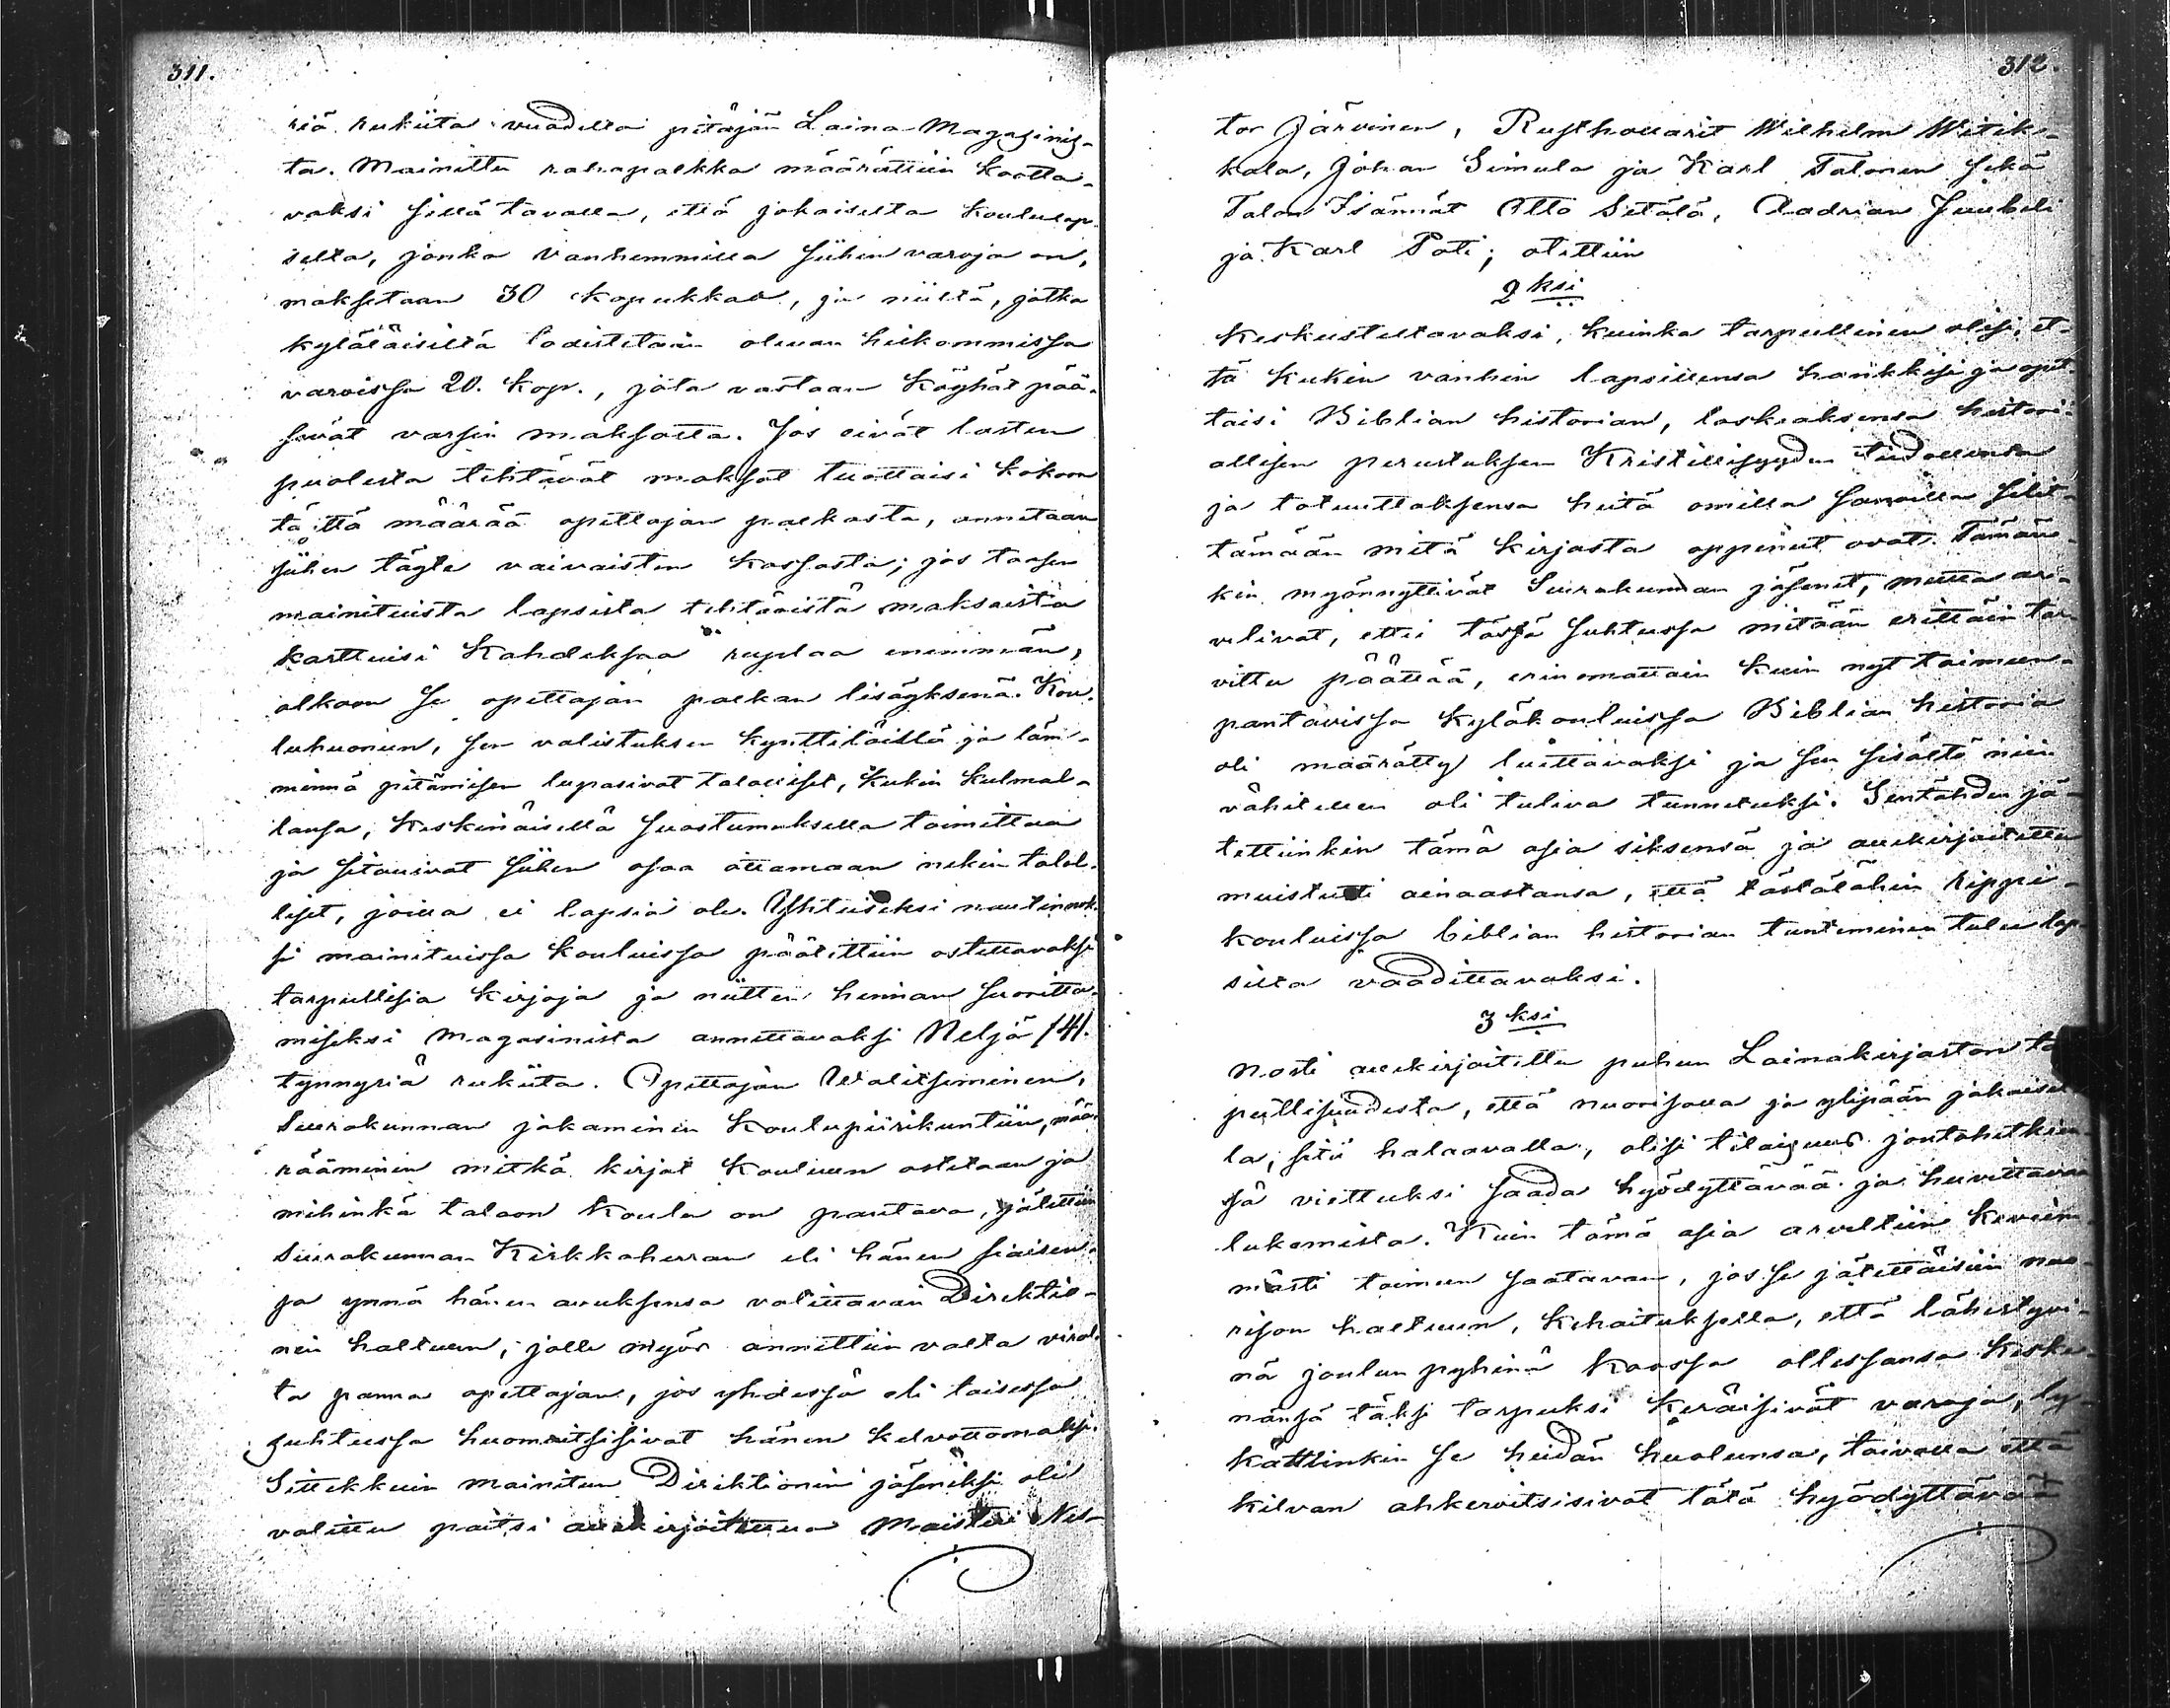 311.
riä rukiita vuodella pitäjän Laina-Magazinis-
ta. Mainittu rahapalkka määrättiin kootta-
vaksi sillä tavalla, että jokaiselta koululap-
selta, jonka vanhemmilla siihen varoja on,
maksetaan 30 kopekkaa, ja niiltä, jotka
kyläläisiltä todistetaan olevan heikommissa
varoissa 20. kop., jota vastaan köyhät pää-
sevät varsin maksotta. Jos eivät lasten
puolesta tehtävät maksot tuottaisi kokoon
tättä määrää opettajan palkasta, annetaan
siihen täyte vaivaisten kassasta; jos taasen
mainituista lapsista tehtävistä maksoista
karttuisi kahdeksaa ruplaa enemmän,
olkoon se opettajan palkan lisäyksenä. Kou-
luhuonen, sen valistuksen kynttilöillä ja läm-
minnä pitämisen lupasivat talolliset, kukin kulmal-
lansa, keskinäisellä suostumuksella toimittaa
ja sitouivat siihen osaa ottamaan nekin talol-
liset, joilla ei lapsia ole. Yhteiseksi nautinnok-
si mainituissa kouluissa päätettiin ostettavaksi
tarpeellisia kirjoja ja niitten hinnan suoritta-
miseksi magasinista annettavaksi Neljä /4/.
tynnyriä rukiita. Opettajan Walitseminen,
Seurakunnan jakaminen koulupiirikuntiin, mää-
rääminen mitkä kirjat kouluun ostetaan ja
mihinkä taloon koulu on pantava, jätettiin
Seurakunnan Kirkkoherran eli hänen siaisen-
ja ynnä hänen avuksensa valittavan Direktio-
nin haltuun, jolle myös annettiin valta viral-
ta panna opettajan, jos yhdessä eli toisessa
suhteessa huomaitsisivat hänen kelvottomaksi.
Sittekkuin mainitun Direktionin jäseniksi oli
valittu paitsi allekirjoitettua Maisteri Nes-
312.
tor Järvinen, Rusthollarit Wilhelm Witik-
kala, Johan Simula ja Karl Talonen sekä
Talon Isännät Otto Setälä, Aadrian Juubeli
ja Karl Poti; otettiin
2 ksi
Keskusteltavaksi, kuinka tarpeellinen olisi, et-
tä kukin vanhin lapsillensa hankkisi ja opet-
taisi Biblian historian, laskeaksensa histori-
allisen perustuksen Kristillisyyden tiedollensa
ja totuuttaksensa heitä omilla sanoilla selit-
tämään mitä kirjasta oppineet ovat. Tämän-
kin myönnyttivät Seurakunnan jäsenet, mutta ar-
velivat, ettei tässä suhteessa mitään erittäin tar-
vittu päättää, erinomattain kuin nyt toimeen-
pantavissa kyläkouluissa Biblian historia
oli määrätty luettavaksi ja sen sisältö niin
vähitellen oli tuleva tunnetuksi. Sentähden jä-
tettiinkin tämä asia siksensä ja allekirjoitettu
muistutti ainoastansa, että tästälähin rippi-
kouluissa biblian historian tunteminen tulee lap-
silta vaadittavaksi.
3 ksi
Nosti allekirjoitettu puheen Lainakirjaston ta
peellisuudesta, että nuorisolla ja ylipään jokaisel
la, sitä halaavalla, olisi tilaisuus joutohetkien
sä viettuksi saada hyödyttävää ja huvittavaa
lukemista. Kuin tämä asia arveltiin keveim-
mästi toimeen saatavan, jos se jätettäisiin nuo-
rison haltuun, kehoituksella, että lähestyvi-
nä joulun pyhinä koossa ollessansa keske-
nänsä täksi tarpeeksi keräisivät varoja, ly-
kättiinkin se heidän huoleensa, toivolla että
kilvan ahkeroitsisivat tätä hyödyttävää